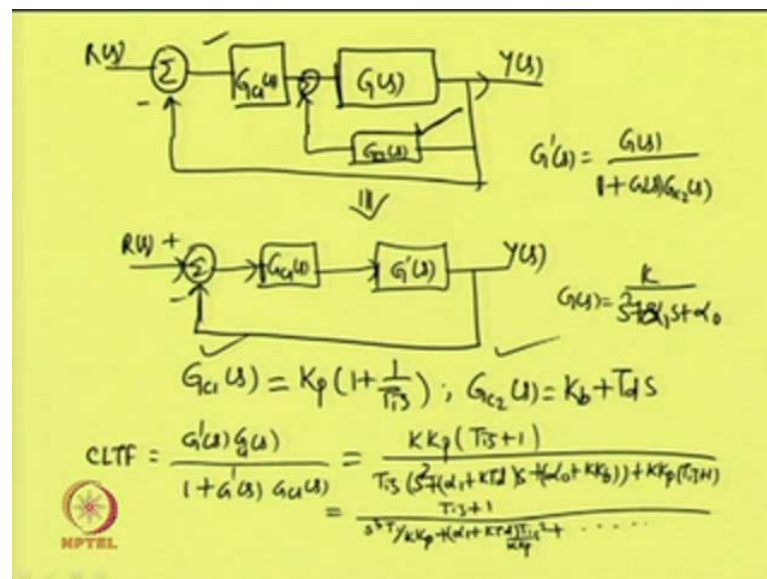 R(s) Σ Gc1(s) Σ G(s) Y(s)
-
Gc2(s)
G'(s) = G(s) / 1+G(s)Gc2(s)
R(s) + Σ Gc1(s) G'(s) Y(s)
-
G(s) = K / s²+α₁s+α₀
Gc1(s) = Kp(1+1/Tis) ; Gc2(s) = Kb+Tds
CLTF = G'(s)G(s) / 1+G'(s)Gc1(s) = KKp(Tis+1) / Tis(s²+(α₁+KTd)s+(α₀+KKb))+KKp(Tis+1)
= Tis+1 / s³Ti/KKp+(α₁+KTd)Tis²/KKp+ ......
NPTEL